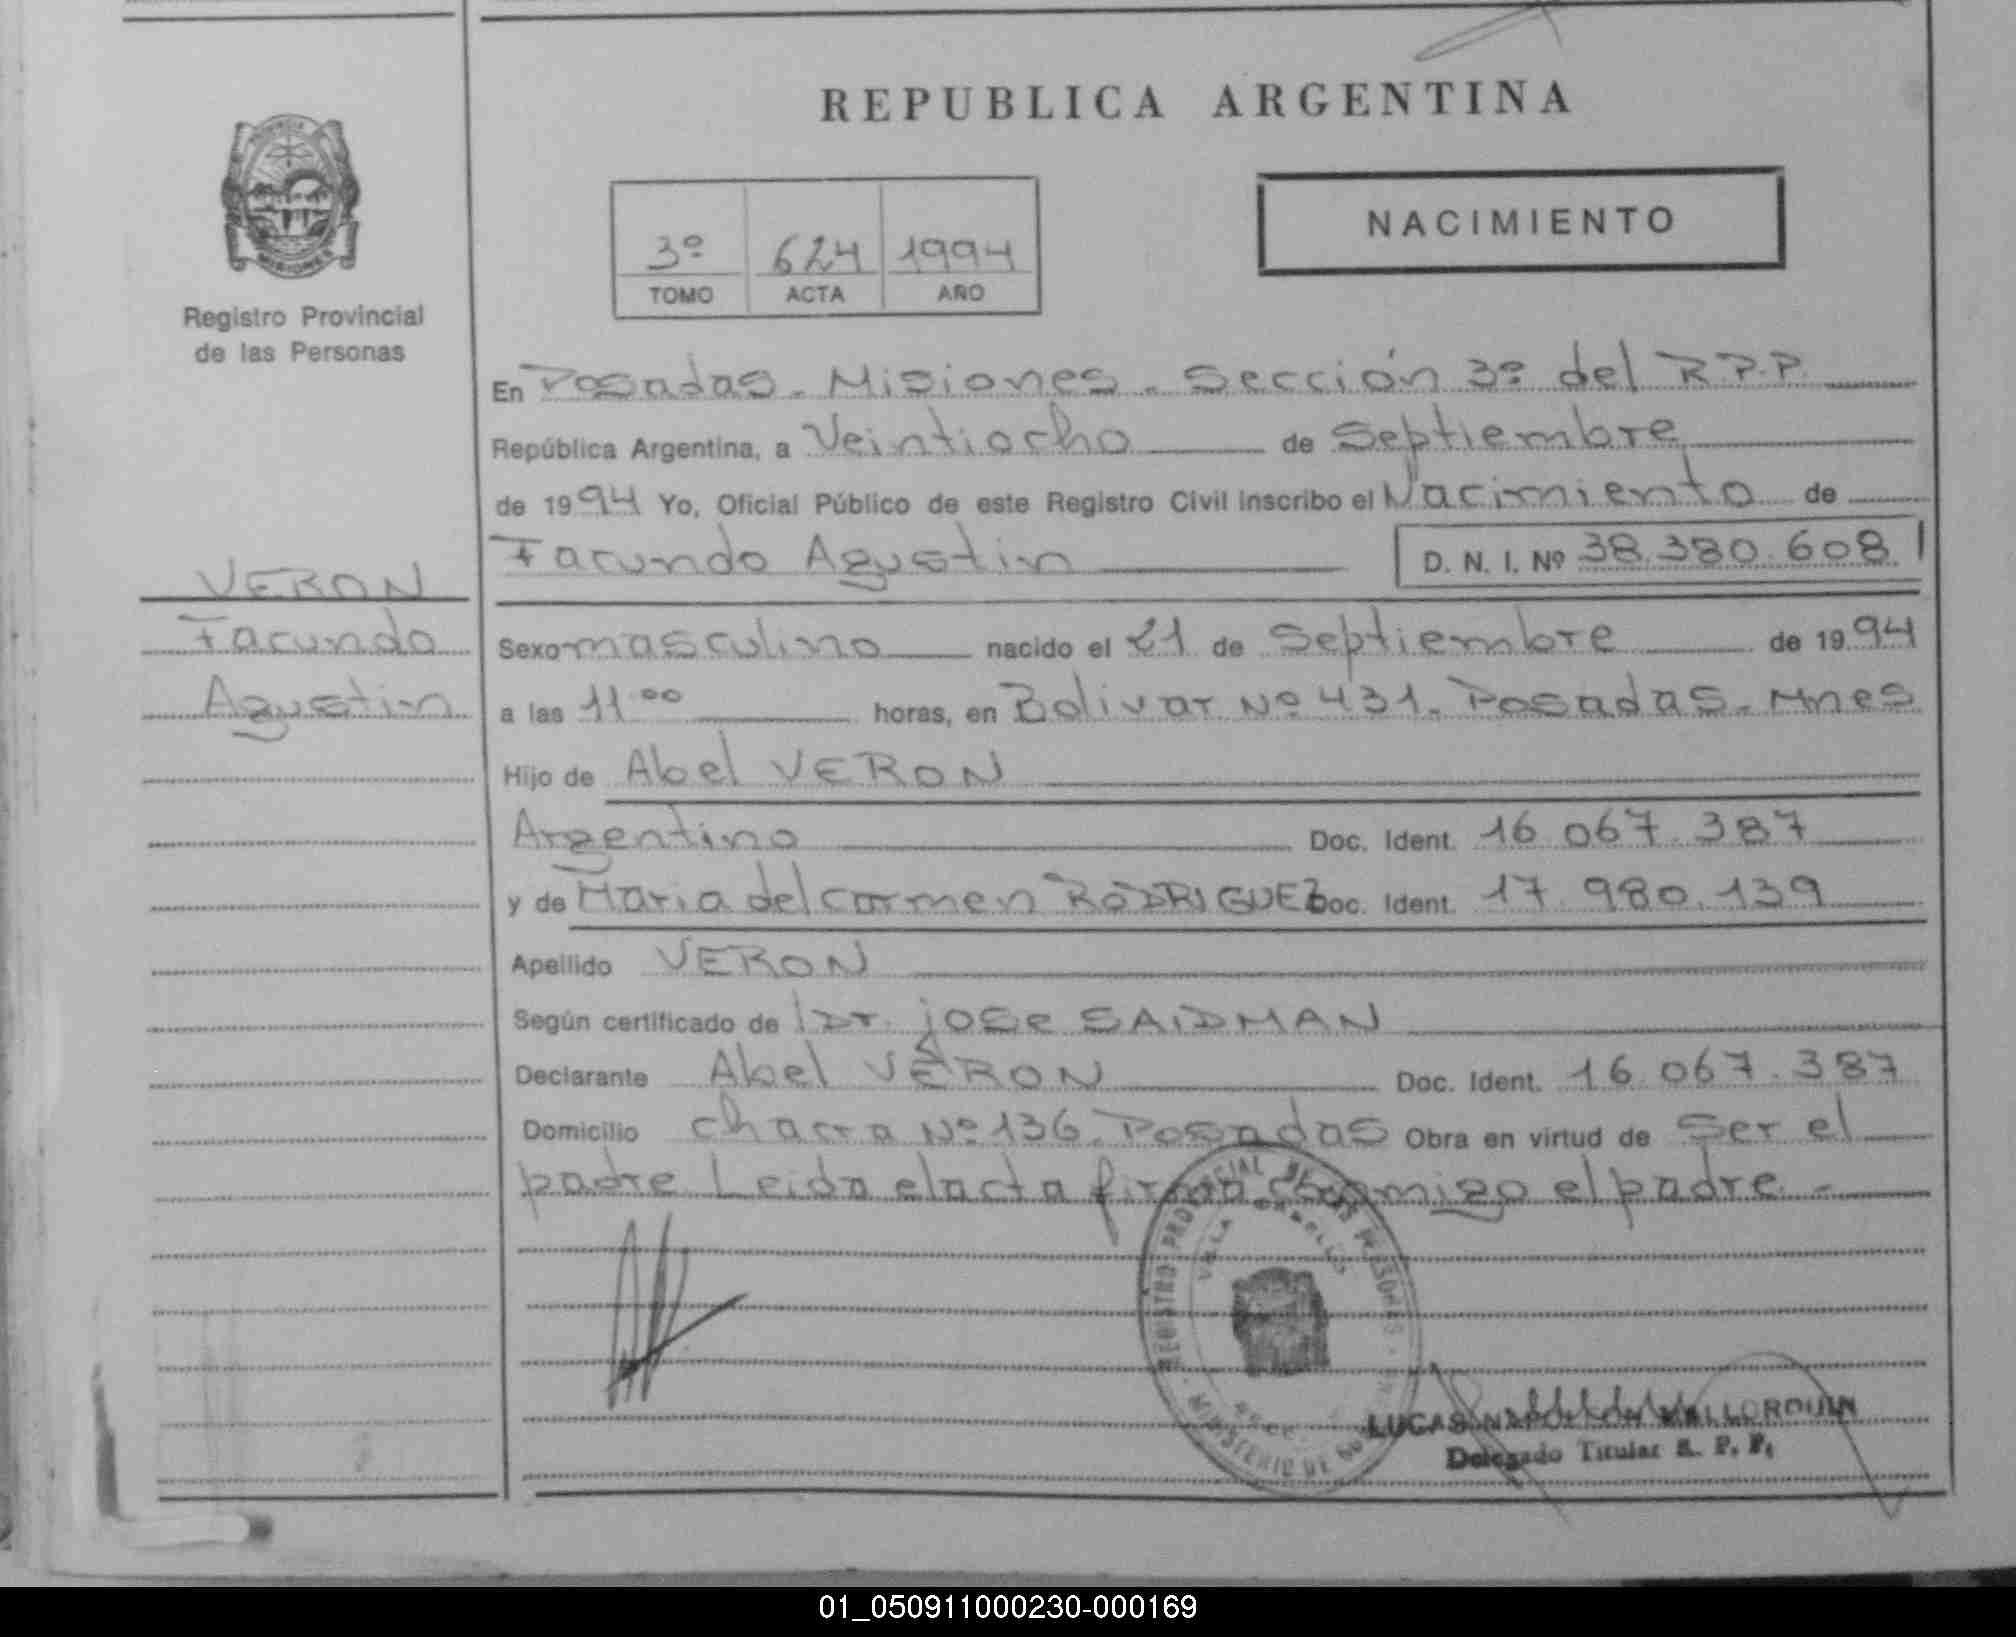 REPUBLICA ARGENTINA
NACIMIENTO
3º 624 1994
TOMO ACTA AÑO
MISIONES
Registro Provincial
de las Personas
VERON
Facundo
Agustin
En Posadas - Misiones - Sección 3º del R.P.P.
República Argentina, a Veintiocho de Septiembre
de 1994 Yo, Oficial Público de este Registro Civil inscribo el Nacimiento de
Facundo Agustin D. N. I. Nº 38.380.608
Sexo masculino nacido el 21 de Septiembre de 1994
a las 11 00 horas, en Bolivar Nº 431. Posadas - Mnes
Hijo de Abel VERON
Argentino Doc. Ident. 16.067.387
y de Maria del Carmen RODRIGUEZ Doc. Ident. 17.980.139
Apellido VERON
Según certificado de Dr. jose SAIDMAN
Declarante Abel VERON Doc. Ident. 16.067.387
Domicilio chacra Nº 136. Posadas Obra en virtud de Ser el
padre Leida el acta firma conmigo el padre. -
REGISTRO PROVINCIAL DE LAS PERSONAS
MINISTERIO DE
VILLA CABELLO
LUCAS MALLORQUIN
Delegado Titular R. P. P.
01_050911000230-000169